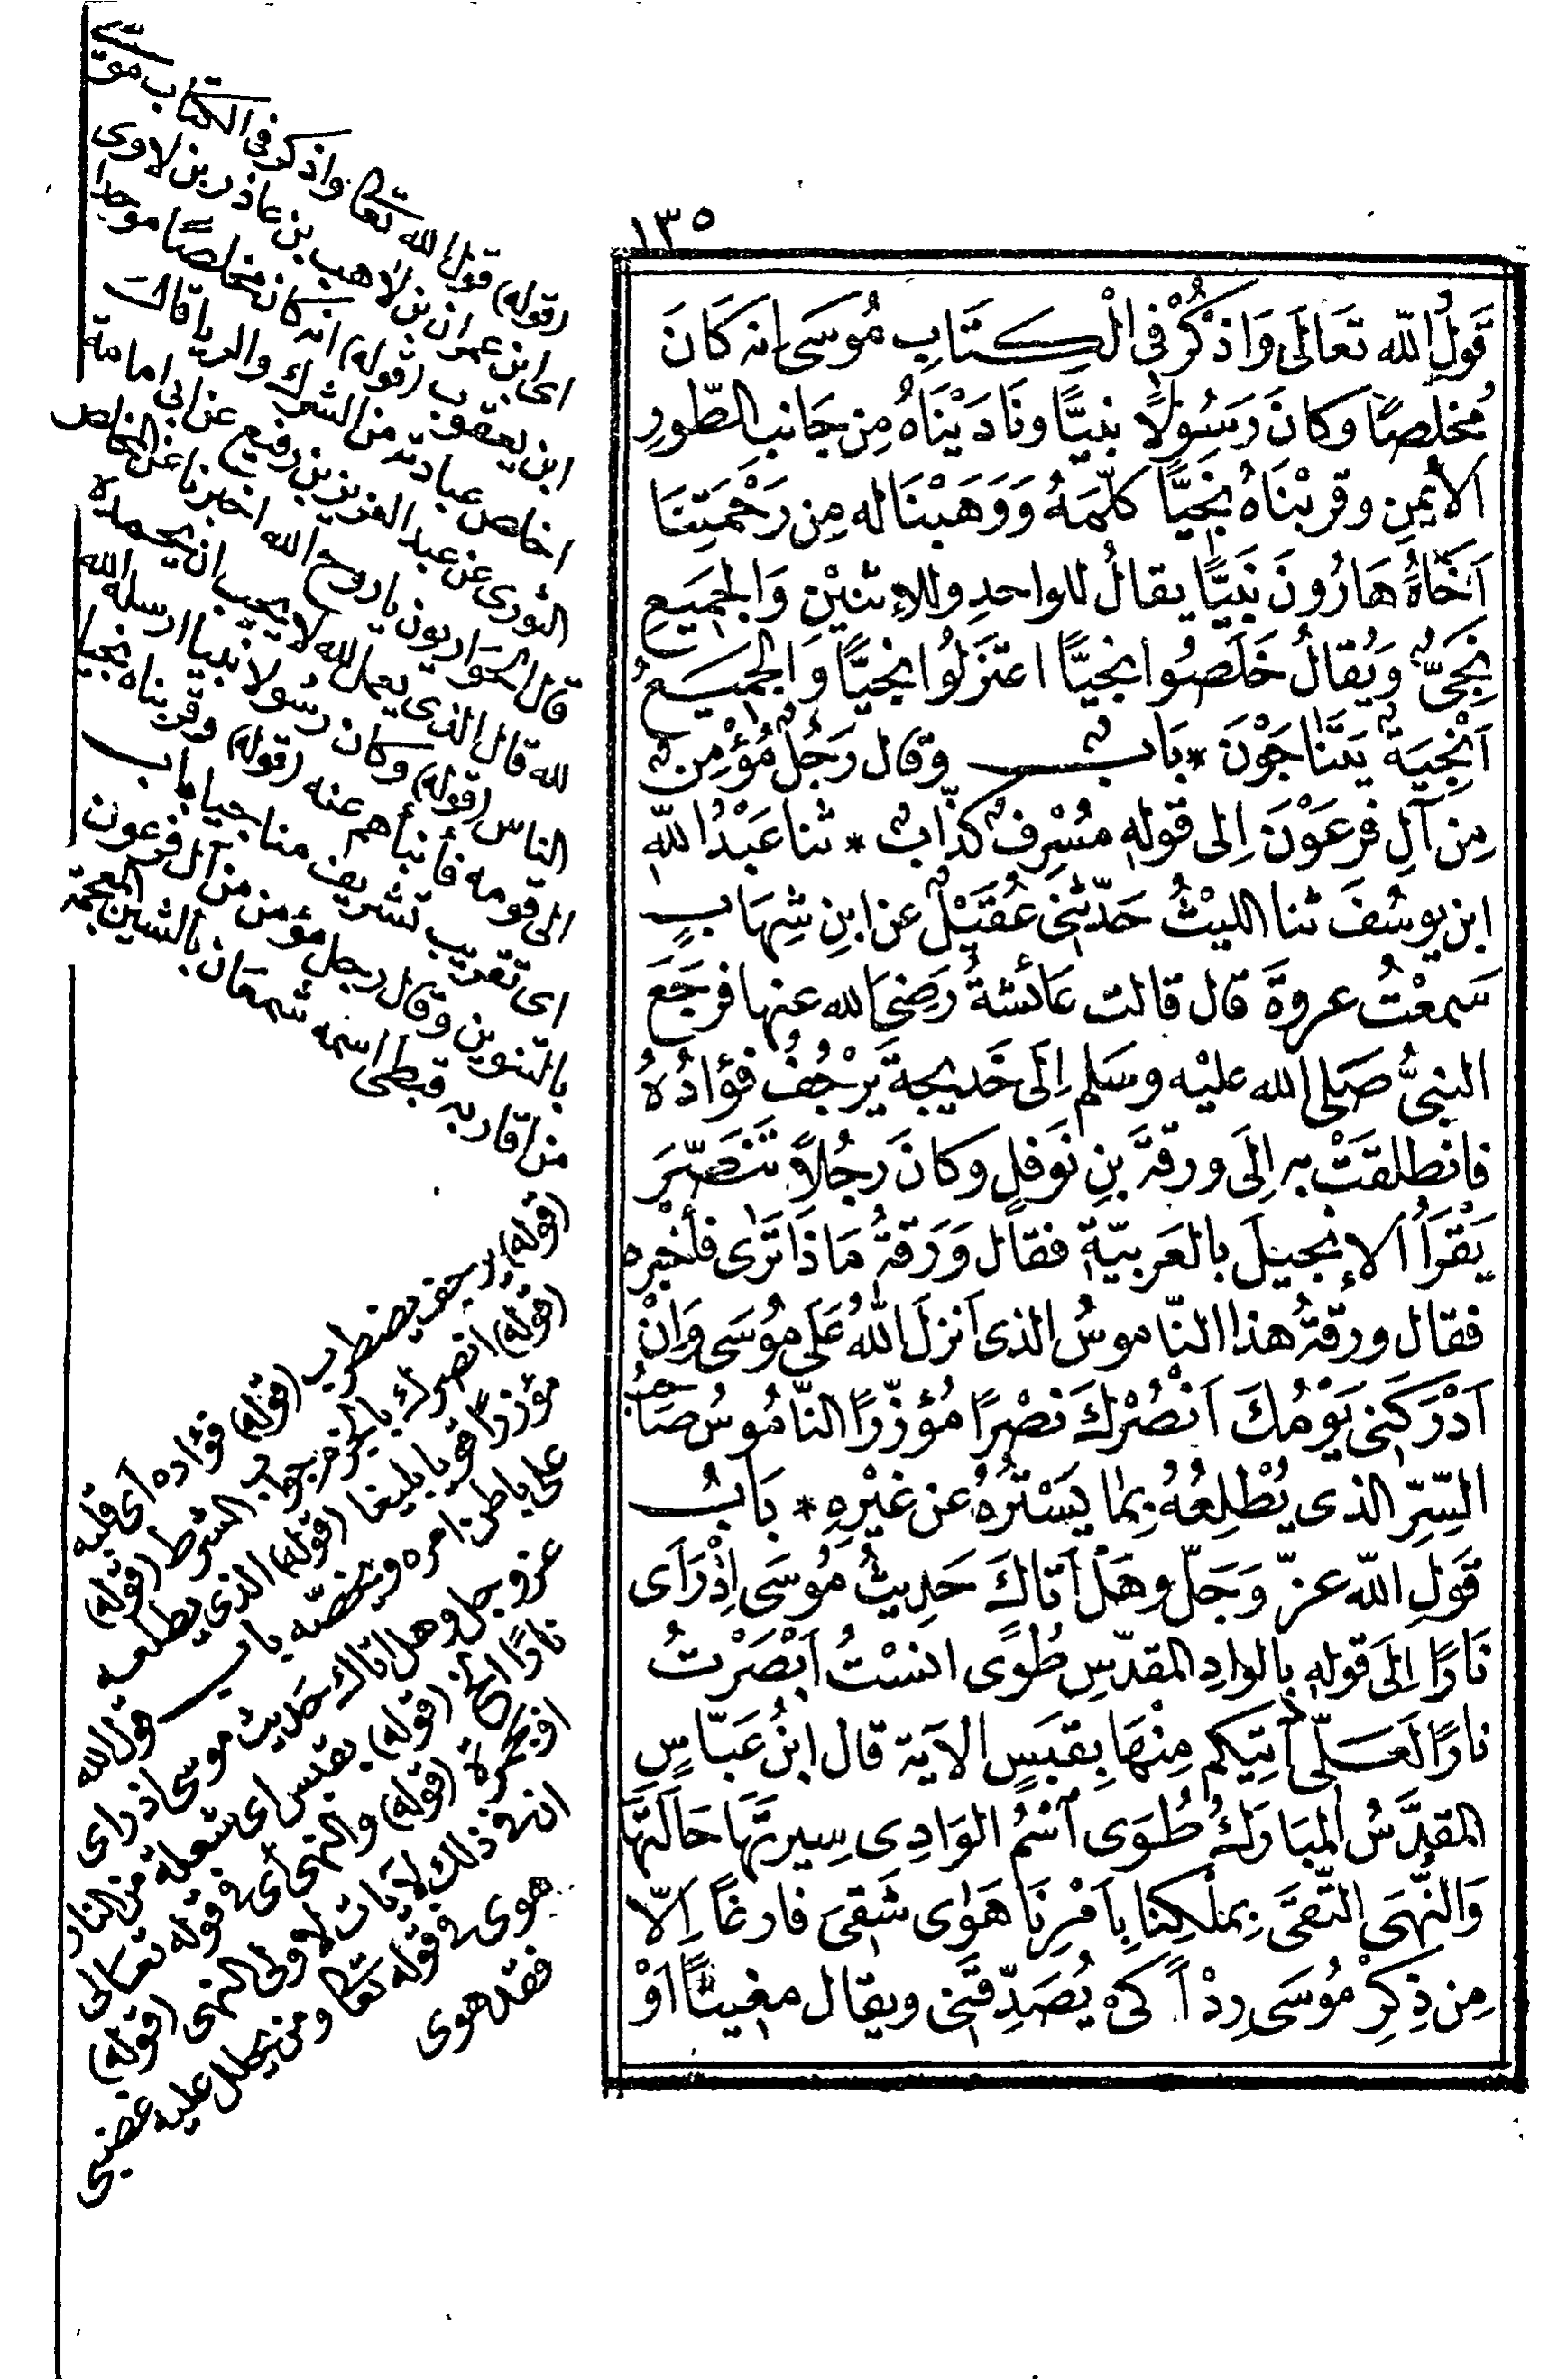 ١٣٥
قَوْلُ اللّٰه تَعَالَى وَاذْكُرْ فِى الْكِتَابِ مُوسَى انه كَانَ
مُخلَصًا وَكانَ رَسُولًا نبيًّا ونَادَيْنَاهُ مِن جَانبِ الطّورِ
الأيْمِنِ وقربْنَاهُ نَجيًّا كلّمَهُ وَوَهَبْنَا له مِن رَحْمَتِنَا
اَخَاهُ هَارُونَ نَبِيًّا يقالُ للواحدِ وللاِثنَيْنِ وَالجَمِيَعِ
نَجِىٌّ وَيُقالُ خَلَصُوا نجيًّا اعتَزَلُوا نجيًّا وَالجمِيَعُ
اَنْجِيَةٌ يَتَنَاجَوْنَ * بَابٌ وقال رَجُلٌ مُؤْمِنٌ
مِن آلِ فرعَوْنَ اِلى قولهِ مسْرِفٌ كذّابٌ * ثنا عَبْدُ اللّٰهِ
ابن يوسُفَ ثنا الليْثُ حَدّثنِى عُقَيْلٌ عن ابنِ شِهَابٍ
سَمعْتُ عروةَ قال قالت عَائشةُ رَضِىَ الله عنها فرجَعَ
النبىُّ صَلى الله عليْه وسَلم اِلَى خَديجةَ يَرْجُفُ فؤادُهُ
فانطلقَتْ به اِلَى ورقةَ بنِ نَوفلٍ وكانَ رجُلاً تَنَصَّرَ
يَقْرَأُ الاِنجيلَ بالعَربيّةِ فقال وَرَقةُ مَاذَا تَرَى فأخبَره
فقال ورقةُ هذا النّاموسُ الذى اَنزلَ اللّٰهُ عَلَى مُوسَى وَاِنْ
اَدْرَكَنِى يَوْمُكَ اَنْصُرْكَ نصْرًا مُؤزّرًا النّامُوسُ صَاحبُ
السِّرِّ الذى يُطْلِعُهُ بِما يَسْتُرُهُ عن غَيْرِهِ * بَابُ
قَولِ اللّٰه عزّ وَجَلّ وهَلْ اَتَاكَ حَدِيثُ مُوسَى اِذْ رَأَى
نَارًا اِلَى قولهِ بالوادِ المقدّسِ طُوًى انسْتُ اَبْصَرْتُ
نارًا لَعَلّى آتيكم مِنْهَا بِقبَسٍ الآيَة قال ابنُ عَبّاسٍ
المقدَّسُ المبَارَكُ طُوَى اَسْمُ الوَادِى سِيرتَهَا حَالَتَهَا
وَالنُّهَى التُّقَى بِمَلْكِنَا بِأَمْرِنَا هَوٰى شَقِىَ فارغًا اِلّا
مِن ذِكرِ مُوسَى رِدْأً كىْ يُصَدِّقَنِى ويقال مغيثًا اَوْ
(قوله) قول الله تعالى واذكر فى الكتاب موسى
اى ابن عمران بن لاهب بن عاذر بن لاوى
ابن يعقوب (قوله) انه كان مخلصًا موحدا
اخلص عبادته من الشرك والريا قالت
الثورى عن عبد العزيز بن رفيع عن ابى امامة
قال الحواريون يا روح الله اخبرنا عن المخلص
لله قال الذى يعمل لله لا يحب ان يحمده
الناس (قوله) وكان رسولا نبيا ارسله الله
الى قومه فأنبأهم عنه (قوله) وقربناه نجيا
اى تقريب تشريف مناجيا باب
بالتنوين وقال رجل مؤمن من آل فرعون
من اقاربه قبطى اسمه شمعان بالشين المعجمة
(قوله) يرجف يضطرب (قوله) فؤاده اى قلبه
(قوله) انصرك بالجزم جواب الشرط (قوله)
مؤزرًا قويا بليغا (قوله) الذى يطلعه
على باطن امره ويخصه باب قول الله
عز وجل وهل اتاك حديث موسى اذ راى
نارًا الخ (قوله) بقبس اى شعلة من النار
او جمرة (قوله) والنهى اى فى قوله تعالى
ان فى ذلك لآيات لاولى النهى (قوله)
هوى فى قوله تعالى ومن يحلل عليه غضبى
فقد هوى